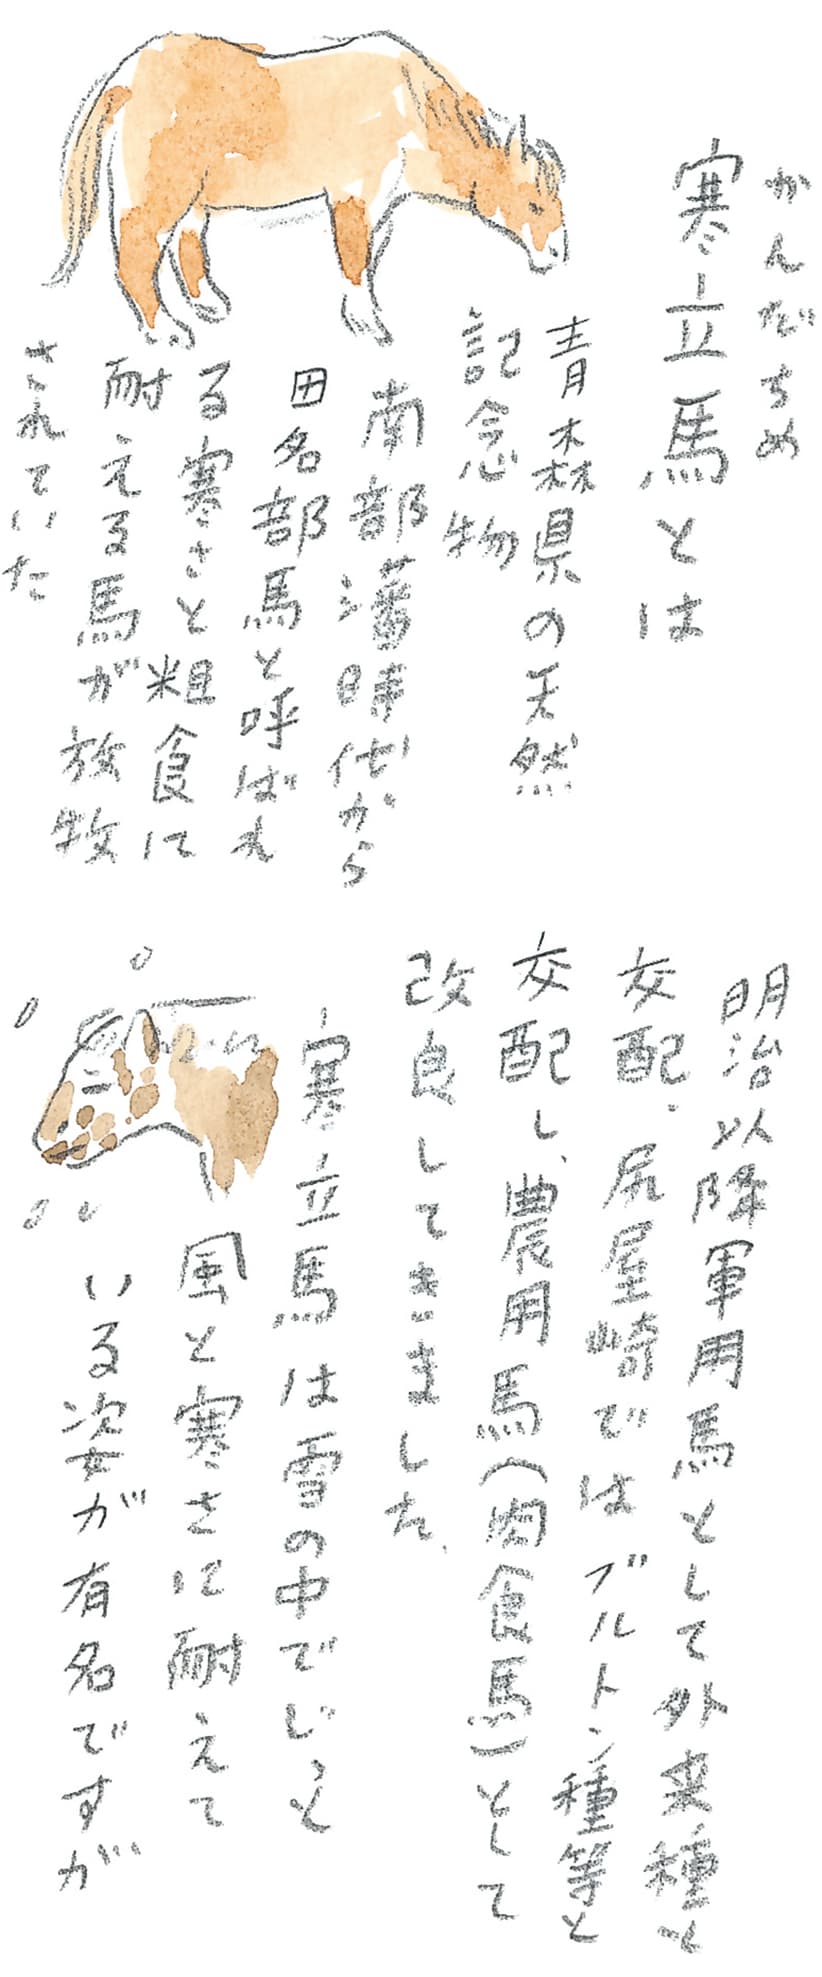 かんだちめ
寒立馬とは
青森県の天然
記念物
南部藩時代から
田名部馬と呼ばれ
る寒さと粗食に
耐える馬が放牧
されていた
明治以降軍用馬として外来種と
交配、尻屋崎ではブルトン種等と
交配し、農用馬(肉食馬)として
改良してきました、
寒立馬は雪の中でじっと
風と寒さに耐えて
いる姿が有名ですが…